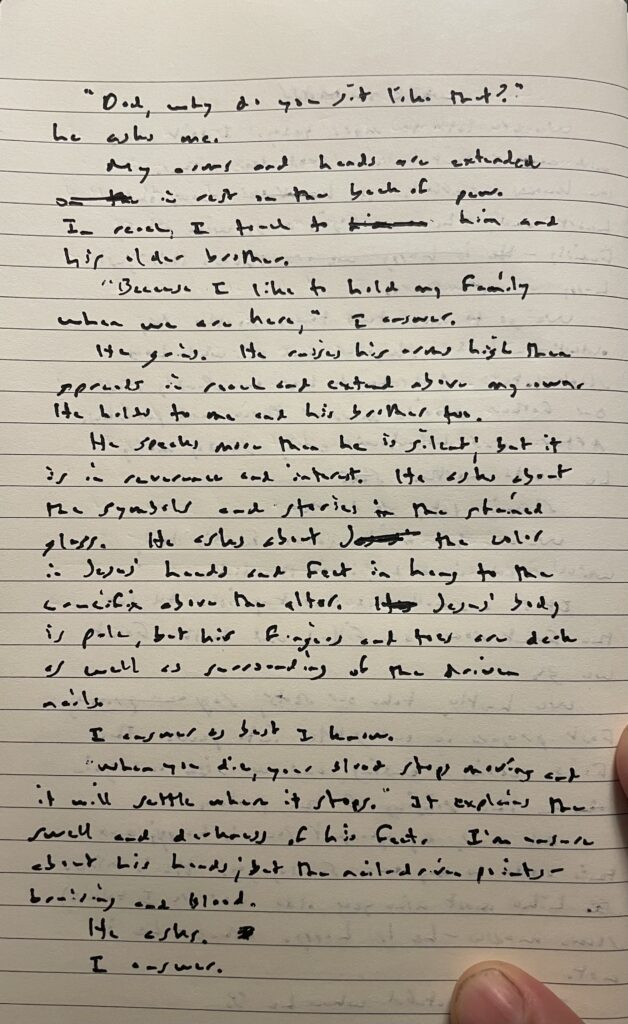 "Dad, why do you sit like that?"
he asks me.
My arms and hands are extended
on the in rest on the back of pew.
In reach, I touch to him and
his older brother.
"Because I like to hold my family
when we are here," I answer.
He grins. He raises his arms high then
spreads in reach and extend above my own.
He holds to me and his brother too.
He speaks more than he is silent; but it
is in reverence and interest. He asks about
the symbols and stories in the stained
glass. He asks about the color
in Jesus' hands and feet in hang to the
crucifix above the alter. Jesus' body
is pale, but his fingers and toes are dark
as well as surrounding of the driven
nails.
I answer as best I know.
"When you die, your blood stops moving and
it will settle where it stops." It explains the
swell and darkness of his feet. I'm unsure
about his hands; but the nail-driven points-
bruising and blood.
He asks.
I answer.